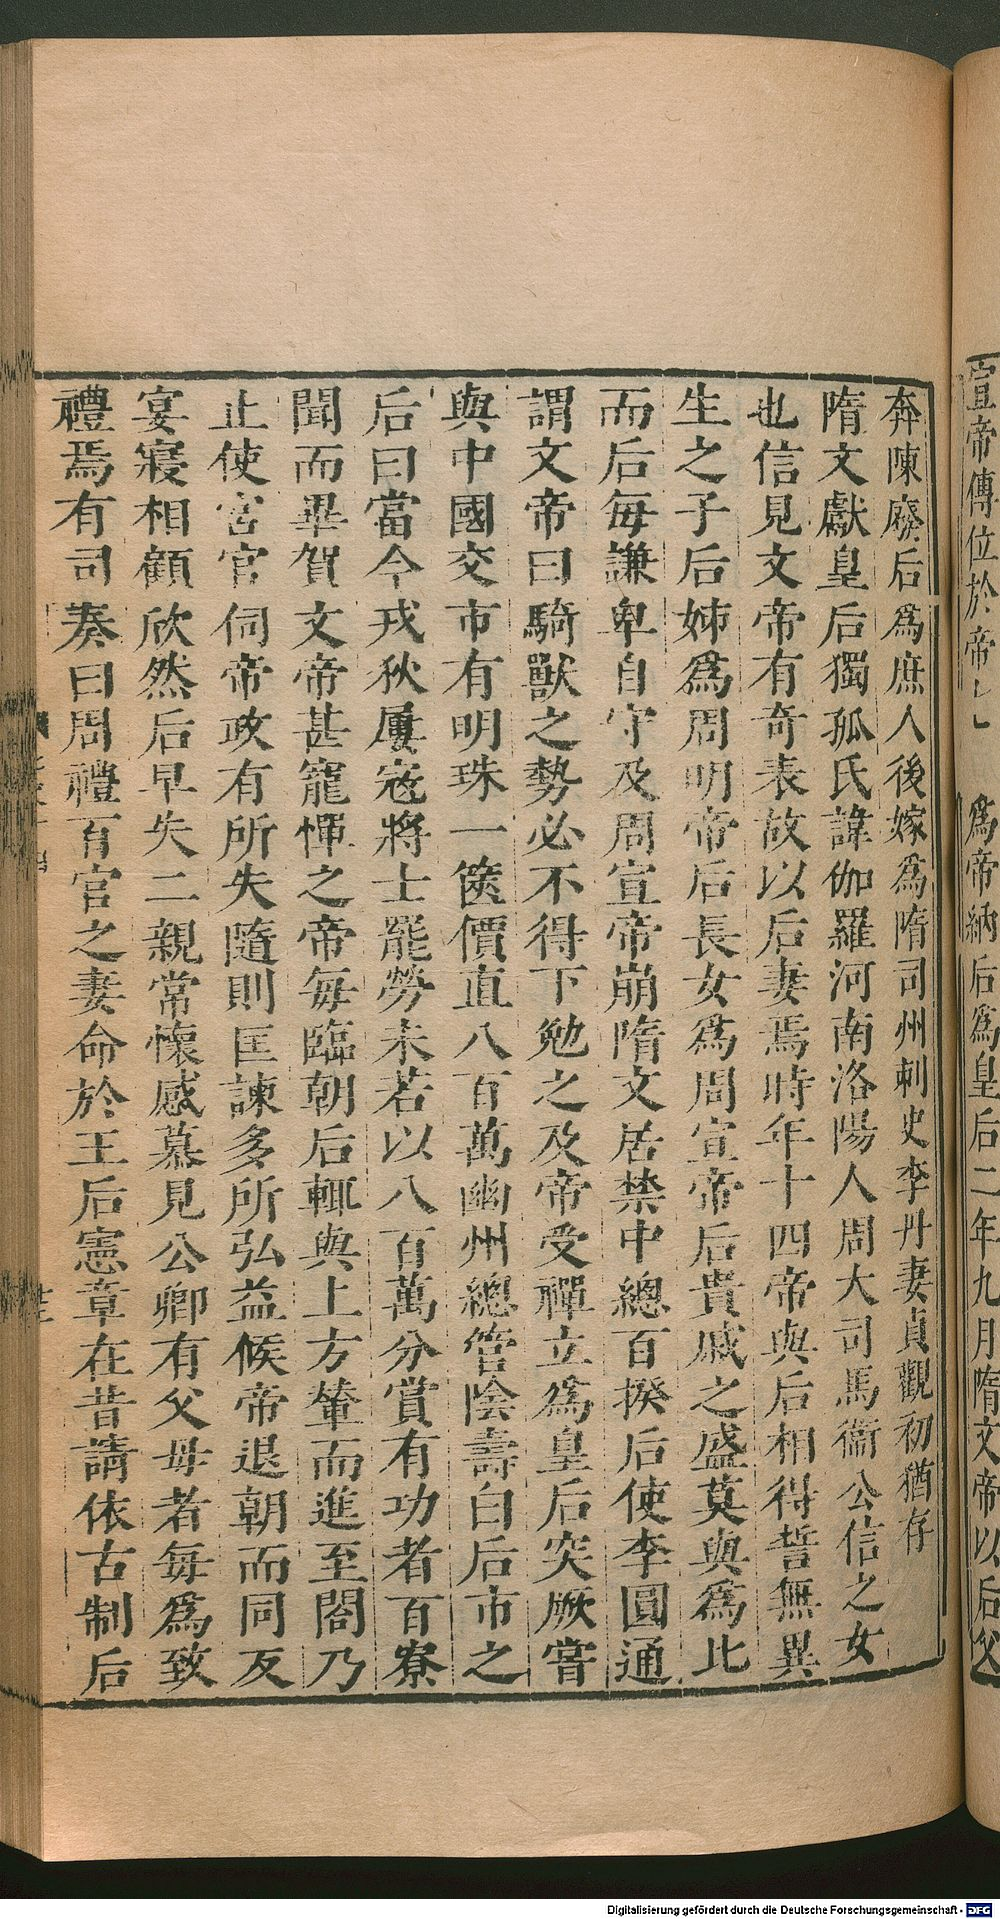 宣帝傳位於帝 爲帝納后爲皇后二年九月隋文帝以后父
奔陳廢后爲庶人後嫁爲隋司州刺史李丹妻貞觀初猶存
隋文獻皇后獨孤氏諱伽羅河南洛陽人周大司馬衞公信之女
也信見文帝有奇表故以后妻焉時年十四帝與后相得誓無異
生之子后姊爲周明帝后長女爲周宣帝后貴戚之盛莫與爲比
而后每謙卑自守及周宣帝崩隋文居禁中總百揆后使李圓通
謂文帝曰騎獸之勢必不得下勉之及帝受禪立爲皇后突厥嘗
與中國交市有明珠一篋價直八百萬幽州總管陰壽白后市之
后曰當今戎狄屢寇將士罷勞未若以八百萬分賞有功者百寮
聞而畢賀文帝甚寵憚之帝每臨朝后輒與上方輦而進至閤乃
止使宮官伺帝政有所失隨則匡諫多所弘益候帝退朝而同反
宴寢相顧欣然后早失二親常懷感慕見公卿有父母者每爲致
禮焉有司奏曰周禮百官之妻命於王后憲章在昔請依古制后
Digitalisierung gefördert durch die Deutsche Forschungsgemeinschaft - DFG